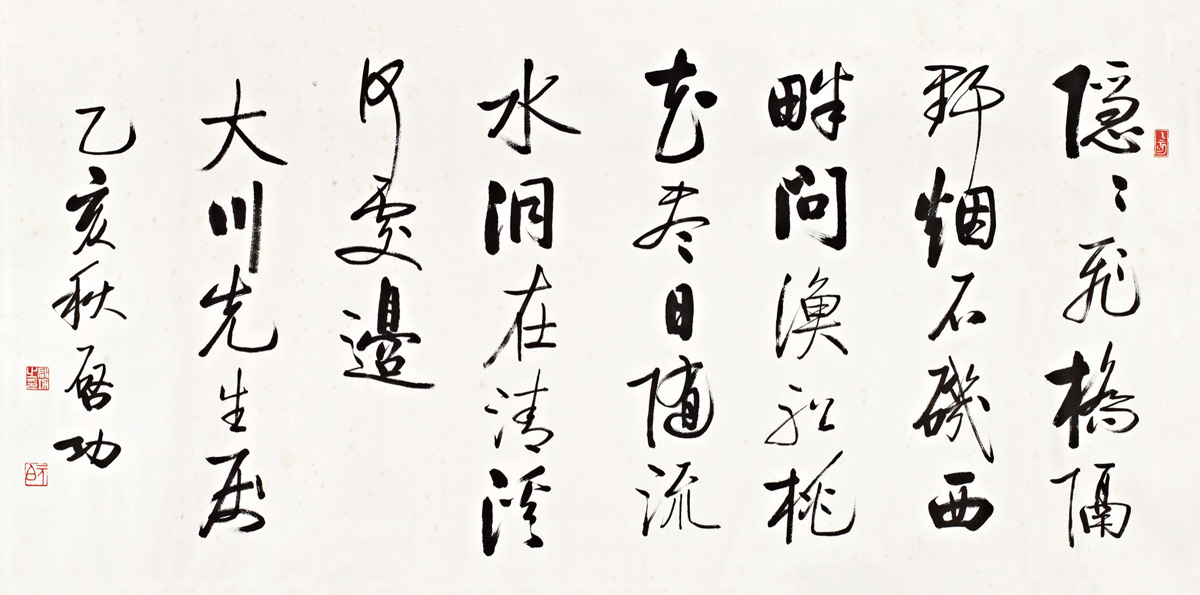 隱〻飛橋隔
野烟石磯西
畔問漁船桃
花尽日随流
水洞在清溪
何處邊
大川先生属
乙亥秋啓功
元白